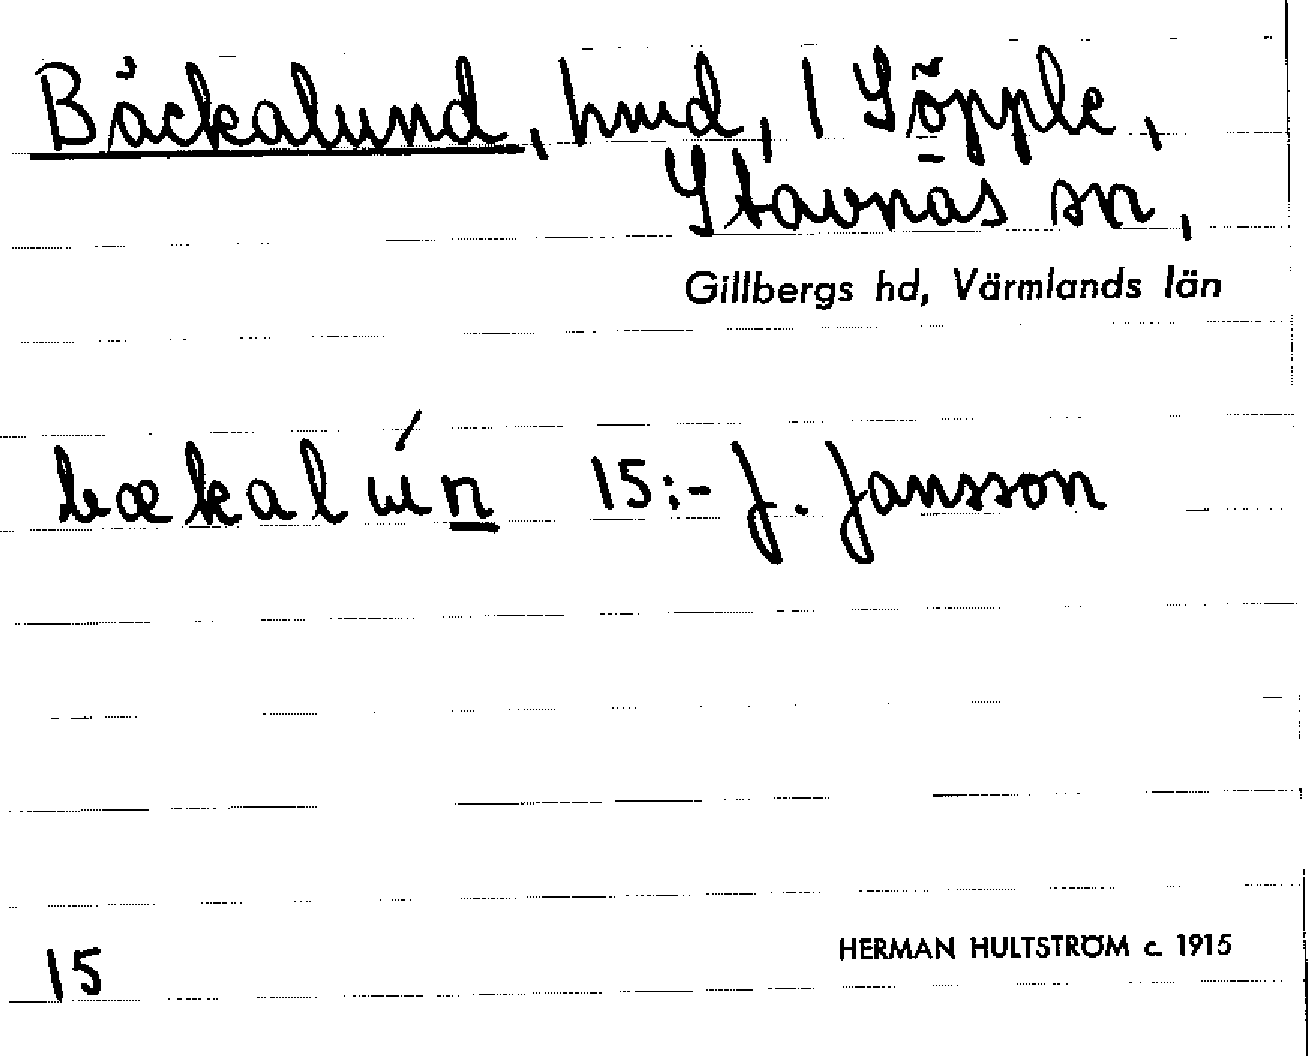 Bäckalund, hmd, 1 Söpple,
Stavnäs sn,
Gillbergs hd, Värmlands län
bækalɯ́n 15:- J. Jansson
15
HERMAN HULTSTRÖM c. 1915